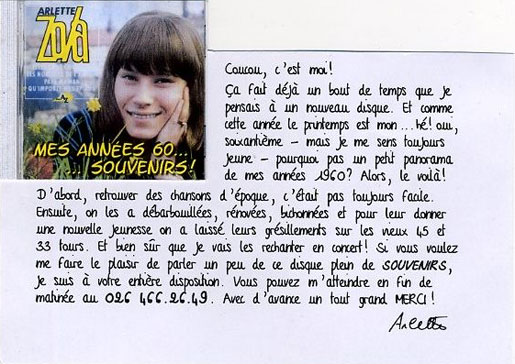 ARLETTE
Zola
MES ANNÉES 60...
... SOUVENIRS!
Coucou, c'est moi!
Ça fait déjà un bout de temps que je
pensais à un nouveau disque. Et comme
cette année le printemps est mon ... hé! oui,
soixantième - mais je me sens toujours
jeune - pourquoi pas un petit panorama
de mes années 1960? Alors, le voilà!
D'abord, retrouver des chansons d'époque, c'était pas toujours facile.
Ensuite, on les a débarbouillées, rénovées, bichonnées et pour leur donner
une nouvelle jeunesse on a laissé leurs grésillements sur les vieux 45 et
33 tours. Et bien sûr que je vais les rechanter en concert! Si vous voulez
me faire le plaisir de parler un peu de ce disque plein de SOUVENIRS,
je suis à votre entière disposition. Vous pouvez m'atteindre en fin de
matinée au 026 466.26.49. Avec d'avance un tout grand MERCI!
Arlette